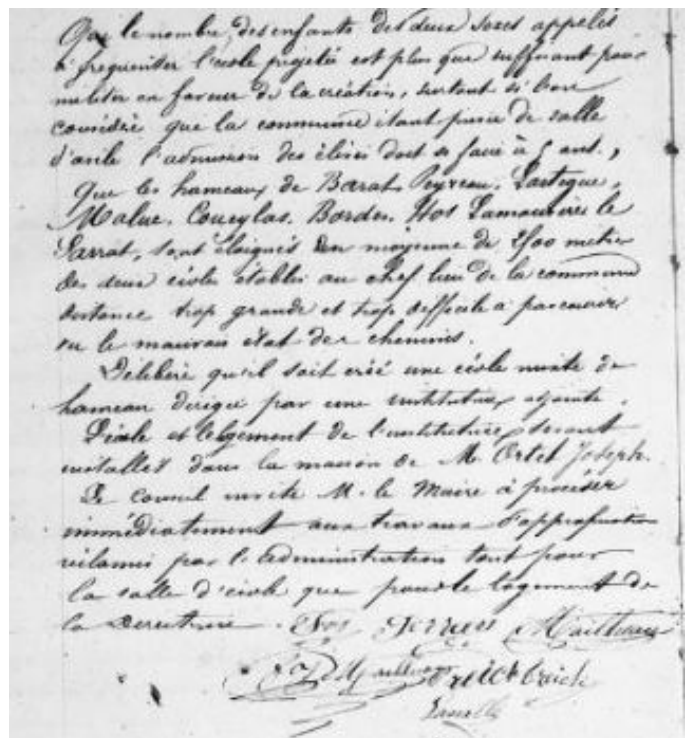 Que le nombre des enfants des deux sexes appelés
à frequenter l'école projetée est plus que suffisant pour
militer en faveur de la création, surtout si l'on
considère que la commune étant privée de salle
d'asile l'admission des élèves doit se faire à 5 ans,
Que les hameaux de Barat, Peyreau, Lartigue,
Malue, Coucylas, Bordes, Hos Lamouroires le
Sarrat, sont éloignés en moyenne de 2500 mètres
des deux école établies au chef lieu de la commune
distance trop grande et trop difficile à parcourir
vu le mauvais état des chemins.
Délibère qu'il soit créé une école mixte de
hameau dirigée par une institutrice adjointe.
L'école et le logement de l'institutrice seront
installés dans la maison de M. Ortet Joseph.
Le Conseil invite M. le Maire à procéder
immédiatement aux travaux d'appropriation
réclamés par l'administration tant pour
la salle d'école que pour le logement de
la Directrice.
Ortet